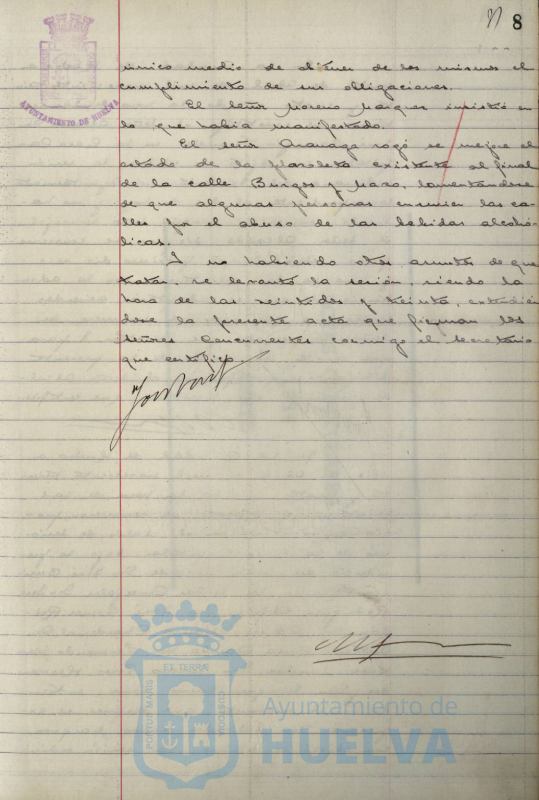 8
AYUNTAMIENTO DE HUELVA
único medio de obtener de los mismos el
cumplimiento de sus obligaciones.
El Señor Moreno Marquez insistió en
lo que había manifestado.
El señor Aranaga rogó se mejore el
estado de la plazoleta existente al final
de la calle Burgos y Mazo, lamentándose
de que algunas personas ensucien las ca-
lles por el abuso de las bebidas alcohó-
licas.
Y no habiendo otros asuntos de que
tratar, se levantó la sesión, siendo la
hora de las veintidos y treinta, extendién-
dose la presente acta que firman los
Señores Concurrentes conmigo el Secretario
que certifico.
PORTUS MARIS ET TERRÆ CUSTODIA
Ayuntamiento de
HUELVA